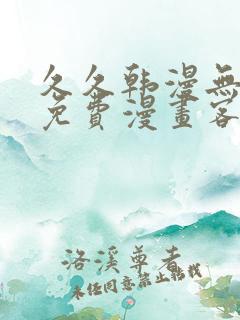 久久韩漫無
免費漫畫客
洛溪尊者
未经同意禁止转载